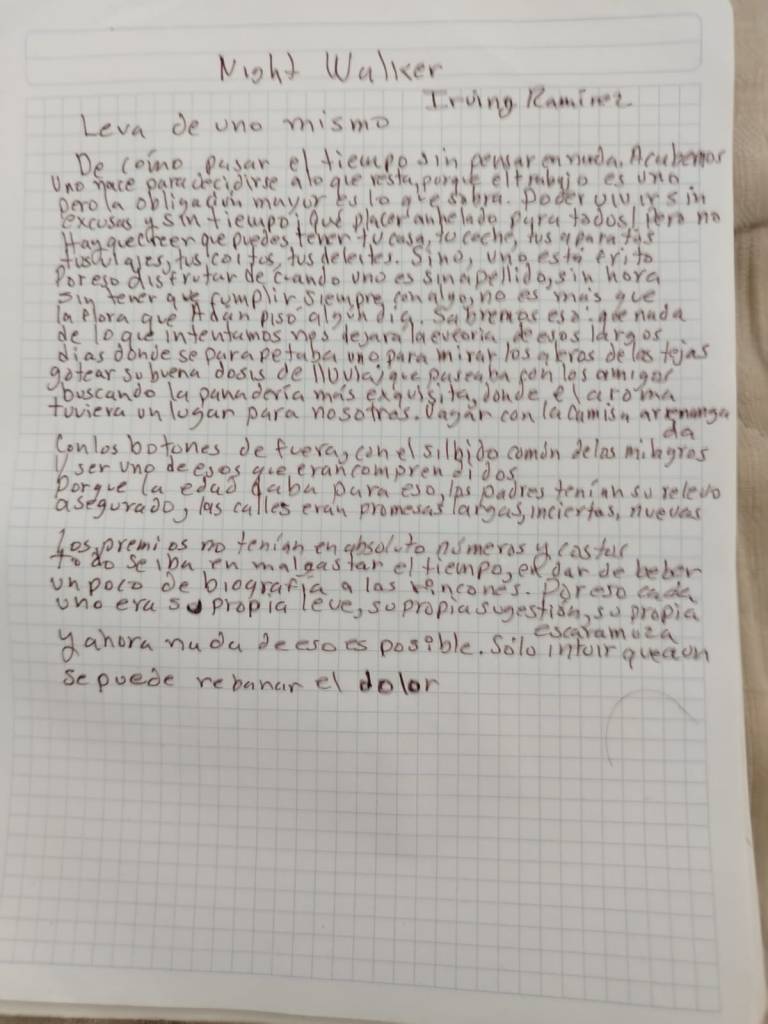 Night Walker
Irving Ramírez
Leva de uno mismo
De cómo pasar el tiempo sin pensar en nada. Acabemos
Uno nace para decidirse a lo que resta, porque el trabajo es uno
pero la obligación mayor es lo que sobra. Poder vivir sin
excusas y sin tiempo ¡qué placer anhelado para todos! Pero no
Hay que creer que puedes tener tu casa, tu coche, tus aparatos
tus viajes, tus coitos, tus deleites. Sino, uno está frito
Por eso disfrutar de cuando uno es sin apellido, sin hora
sin tener que cumplir siempre con algo, no es más que
la flora que Adán pisó algún día. Sabremos esa: que nada
de lo que intentamos nos dejará la euforia de esos largos
días donde se parapetaba uno para mirar los aleros de las tejas
gotear su buena dosis de lluvia; que paseaba con los amigos
buscando la panadería más exquisita, donde el aroma
tuviera un lugar para nosotros. Vagar con la camisa arremanga
da
Con los botones de fuera, con el silbido común de los milagros
y ser uno de esos que eran comprendidos
Porque la edad daba para eso, los padres tenían su relevo
asegurado, las calles eran promesas largas, inciertas, nuevas
Los premios no tenían en absoluto números y costos
todo se iba en malgastar el tiempo, en dar de beber
un poco de biografía a los rincones. Por eso cada
uno era su propia leve, su propia sugestión, su propia
escaramuza
y ahora nada de eso es posible. Sólo intuir que aun
se puede rebanar el dolor